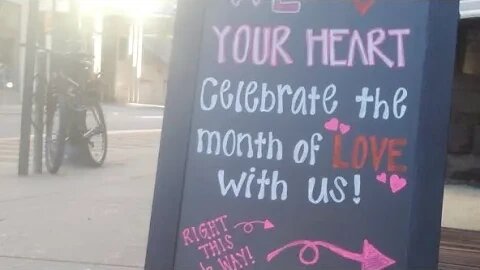 WE
YOUR HEART
Celebrate the
month of LOVE
with us!
RIGHT
THIS
WAY!